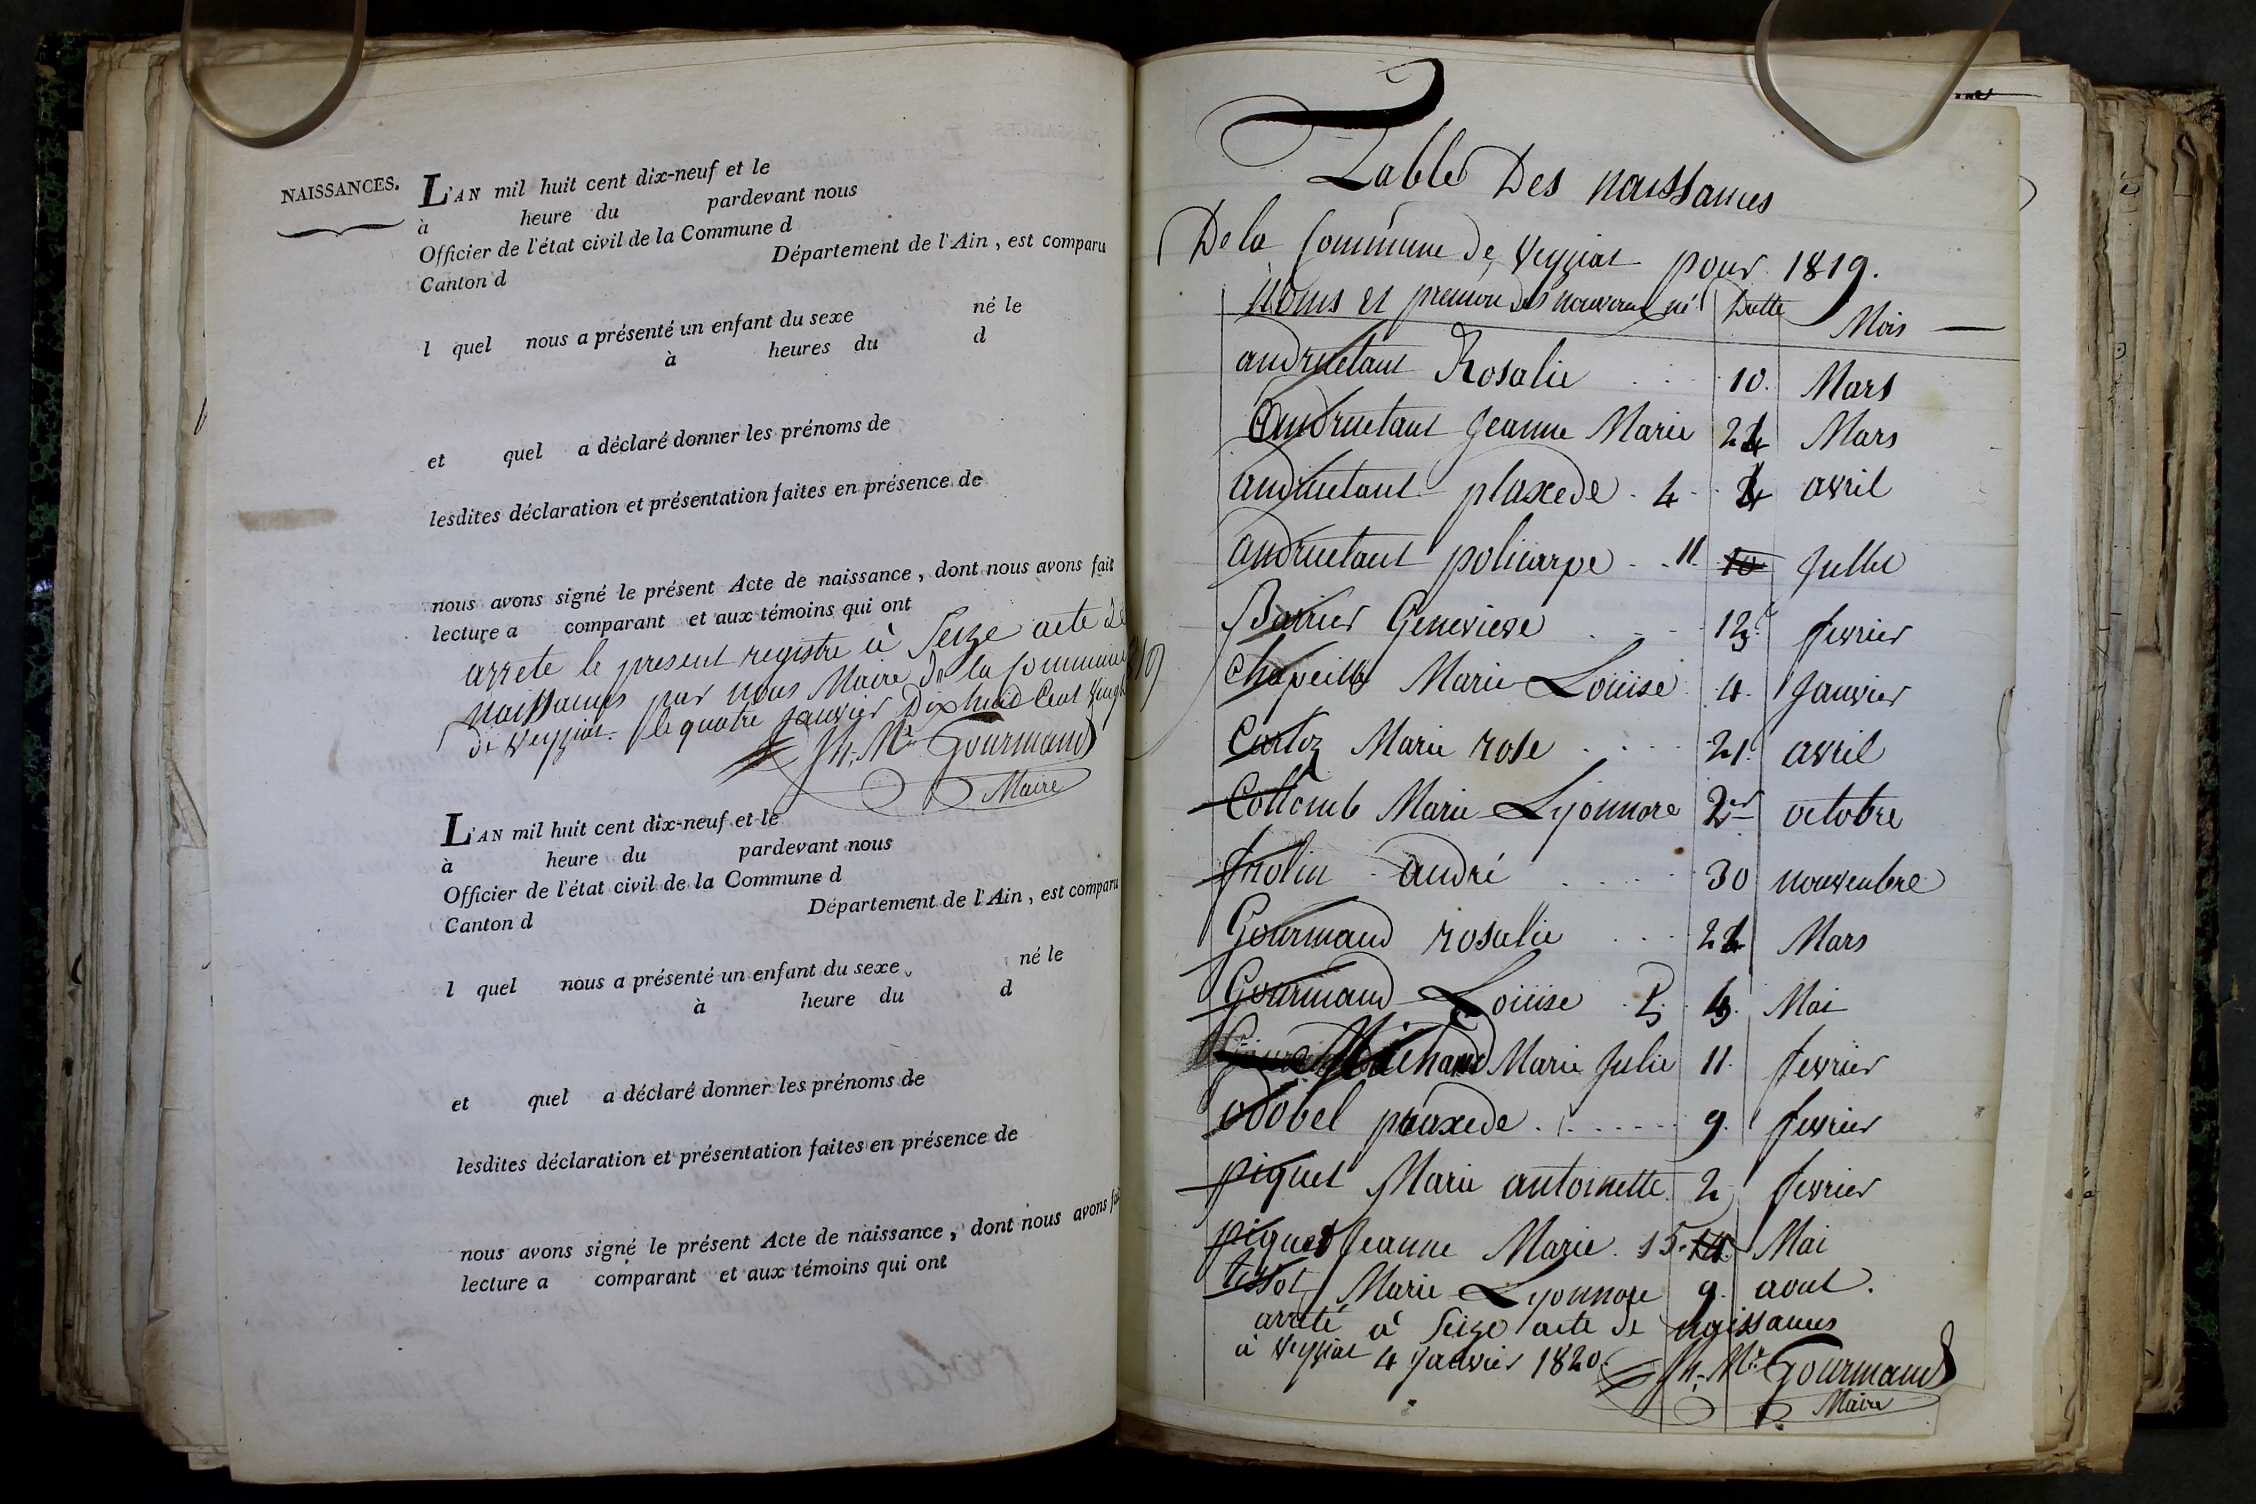 NAISSANCES.
L'AN mil huit cent dix-neuf et le
à heure du pardevant nous
Officier de l'état civil de la Commune d
Canton d Département de l'Ain, est comparu
l quel nous a présenté un enfant du sexe né le
à heures du d
et quel a déclaré donner les prénoms de
lesdites déclaration et présentation faites en présence de
nous avons signé le présent Acte de naissance, dont nous avons fait
lecture a comparant et aux témoins qui ont
arrete le present registre à Seize acte de
naissances par nous Maire de la Commune
de Veyziat. le quatre janvier Dix huid Cent vingt
Jh. Mie Gourmand
Maire
L'AN mil huit cent dix-neuf et le
à heure du pardevant nous
Officier de l'état civil de la Commune d
Canton d Département de l'Ain, est comparu
l quel nous a présenté un enfant du sexe né le
à heure du d
et quel a déclaré donner les prénoms de
lesdites déclaration et présentation faites en présence de
nous avons signé le présent Acte de naissance, dont nous avons fai
lecture a comparant et aux témoins qui ont
Table Des naissances
De la Commune de Veyziat pour 1819.
Noms et prenom des nouveau né Datte Mois
andruetant Rosalie 10. Mars
andruetant Jeanne Marie 24 Mars
andruetant plaxede . 4 avril
andruetant policarpe . . 11. 10 Jullet
Barrier Genevieve 13 fevrier
Chapeill Marie Louise 4. Janvier
Cartoz Marie rose 21. avril
Collomb Marie Lyonnore 2er octobre
frolin andré 30 nouvenbre
Gourmand rosalie 24 Mars
Gourmand Louise 5 Mai
Michand Marie Julie 11. fevrier
odobel praxede 9. fevrier
piquet Marie antoinette 2 fevrier
piquet Jeanne Marie . 15. 14 Mai
tissot Marie Lyonnore 9. aout.
arreté à Seize acte de naissances
à Veyziat 4 Janvier 1820.
Jh. Mie Gourmand
Maire